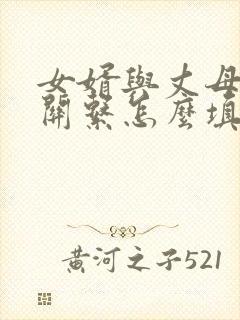 女婿與丈母
關繫怎麼填
黄河之子521